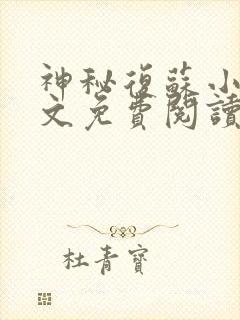 神秘復蘇小
文免費閱讀
杜青寶